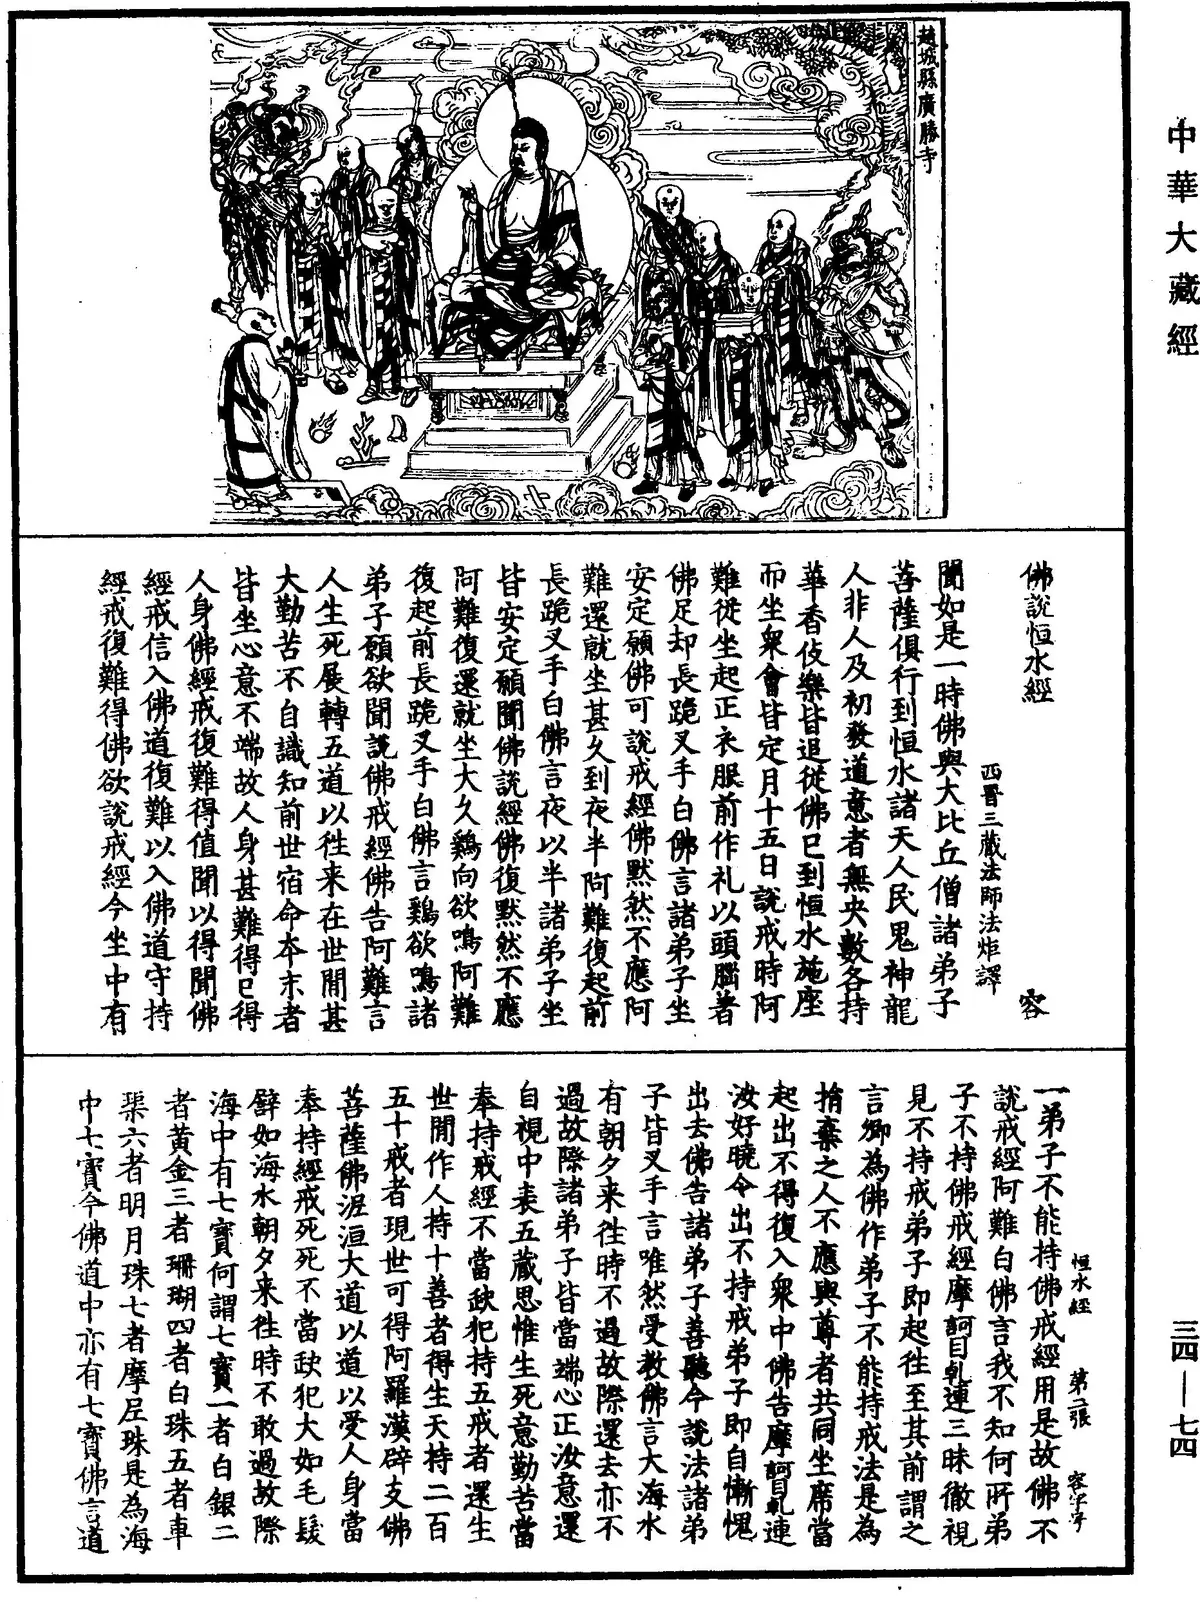 中華大藏經
趙城縣廣勝寺
佛說恒水經
容
西晉三藏法師法炬譯
聞如是一時佛與大比丘僧諸弟子
菩薩俱行到恒水諸天人民鬼神龍
人非人及初發道意者無央數各持
華香伎樂皆追從佛已到恒水施座
而坐衆會皆定月十五日說戒時阿
難從坐起正衣服前作礼以頭腦著
佛足却長跪叉手白佛言諸弟子坐
安定願佛可說戒經佛默然不應阿
難還就坐甚久到夜半阿難復起前
長跪叉手白佛言夜以半諸弟子坐
皆安定願聞佛說經佛復默然不應
阿難復還就坐大久鷄向欲鳴阿難
復起前長跪叉手白佛言鷄欲鳴諸
弟子願欲聞說佛戒經佛告阿難言
人生死展轉五道以徃来在世間甚
大勤苦不自識知前世宿命本末者
皆坐心意不端故人身甚難得已得
人身佛經戒復難得值聞以得聞佛
經戒信入佛道復難以入佛道守持
經戒復難得佛欲說戒經今坐中有
恒水經 第二張 容字号
一弟子不能持佛戒經用是故佛不
說戒經阿難白佛言我不知何所弟
子不持佛戒經摩訶目乹連三昧徹視
見不持戒弟子即起徃至其前謂之
言卿為佛作弟子不能持戒法是為
捐棄之人不應與尊者共同坐席當
起出不得復入衆中佛告摩訶目乹連
汝好曉令出不持戒弟子即自慚愧
出去佛告諸弟子善聽今說法諸弟
子皆叉手言唯然受教佛言大海水
有朝夕来徃時不過故際還去亦不
過故際諸弟子皆當端心正汝意還
自視中表五藏思惟生死意勤苦當
奉持戒經不當缺犯持五戒者還生
世間作人持十善者得生天持二百
五十戒者現世可得阿羅漢辟支佛
菩薩佛泥洹大道以道以受人身當
奉持經戒死死不當缺犯大如毛髮
辟如海水朝夕来徃時不敢過故際
海中有七寶何謂七寶一者白銀二
者黃金三者珊瑚四者白珠五者車
璖六者明月珠七者摩尼珠是為海
中七寶今佛道中亦有七寶佛言道
三四—七四